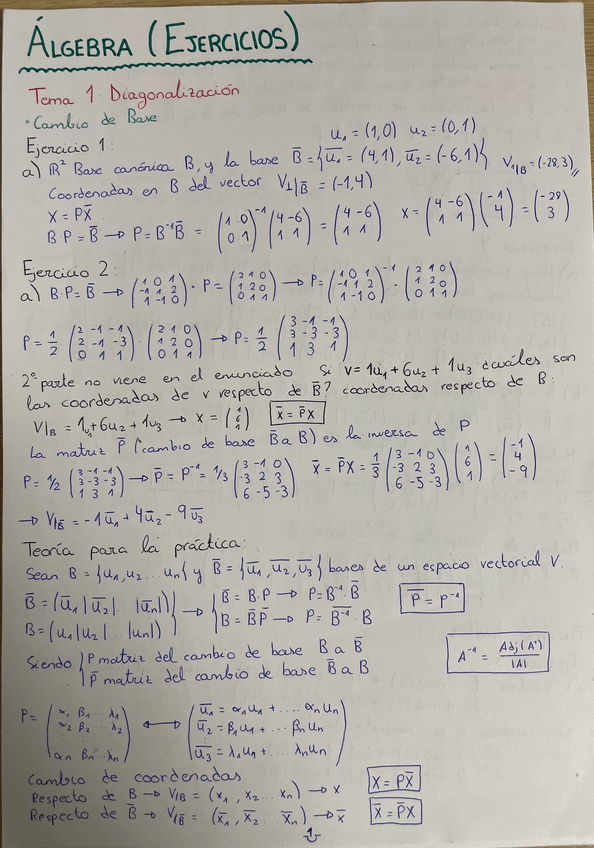 ÁLGEBRA (EJERCICIOS)
Tema 1: Diagonalización
· Cambio de Base
u₁ = (1,0) u₂ = (0,1)
Ejercicio 1:
a) ℝ² Base canónica B, y la base B̅ = {u̅₁ = (4,1), u̅₂ = (-6,1)} V₁|B = (-28,3)
Coordenadas en B del vector V₁|B̅ = (-1,4)
X = PX̅
B·P = B̅ → P = B⁻¹B̅ = (1 0 / 0 1)⁻¹ (4 -6 / 1 1) = (4 -6 / 1 1) X = (4 -6 / 1 1) (-1 / 4) = (-28 / 3)
Ejercicio 2:
a) B·P = B̅ → (1 0 1 / -1 1 2 / 1 -1 0) · P = (2 1 0 / 1 2 0 / 0 1 1) → P = (1 0 1 / -1 1 2 / 1 -1 0)⁻¹ · (2 1 0 / 1 2 0 / 0 1 1)
P = 1/2 (2 -1 -1 / 2 -1 -3 / 0 1 1) · (2 1 0 / 1 2 0 / 0 1 1) → P = 1/2 (3 -1 -1 / 3 -3 -3 / 1 3 1)
2ª parte no viene en el enunciado. Si V = 1u₁ + 6u₂ + 1u₃ ¿cuáles son
las coordenadas de v respecto de B̅? coordenadas respecto de B:
V|B = 1u₁ + 6u₂ + 1u₃ → X = (1 / 6 / 1) X̅ = P̅X
La matriz P̅ (cambio de base B̅ a B) es la inversa de P
P = 1/2 (3 -1 -1 / 3 -3 -3 / 1 3 1) → P̅ = P⁻¹ = 1/3 (3 -1 0 / -3 2 3 / 6 -5 -3) X̅ = P̅X = 1/3 (3 -1 0 / -3 2 3 / 6 -5 -3) (1 / 6 / 1) = (-1 / 4 / -9)
→ V|B̅ = -1u̅₁ + 4u̅₂ - 9u̅₃
Teoría para la práctica:
Sean B = {u₁, u₂ ... un} y B̅ = {u̅₁, u̅₂, u̅₃} bases de un espacio vectorial V.
B̅ = (u̅₁|u̅₂|...|u̅n) → B̅ = B·P → P = B⁻¹·B̅ P̅ = P⁻¹
B = (u₁|u₂|...|un) B = B̅P̅ → P̅ = B̅⁻¹·B
Siendo P matriz del cambio de base B a B̅ A⁻¹ = Adj(Aᵗ)/|A|
P̅ matriz del cambio de base B̅ a B
P = (α₁ β₁ ... λ₁ / α₂ β₂ ... λ₂ / ⋮ / αn βn ... λn) ↔ (u̅₁ = α₁u₁ + ... αnun / u̅₂ = β₁u₁ + ... βnun / u̅₃ = λ₁u₁ + ... λnun)
Cambio de coordenadas X = PX̅
Respecto de B → V|B = (x₁, x₂ ... xn) → X
Respecto de B̅ → V|B̅ = (x̅₁, x̅₂ ... x̅n) → X̅ X̅ = P̅X
1